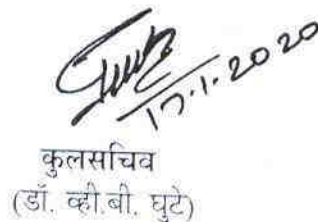 17.1.2020
कुलसचिव
(डॉ. व्ही.बी. घुटे)